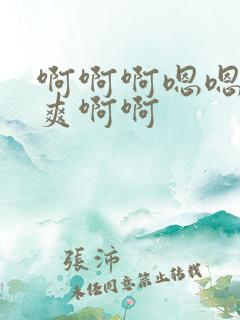 啊啊啊嗯嗯
爽啊啊
張沛
未经同意禁止转载